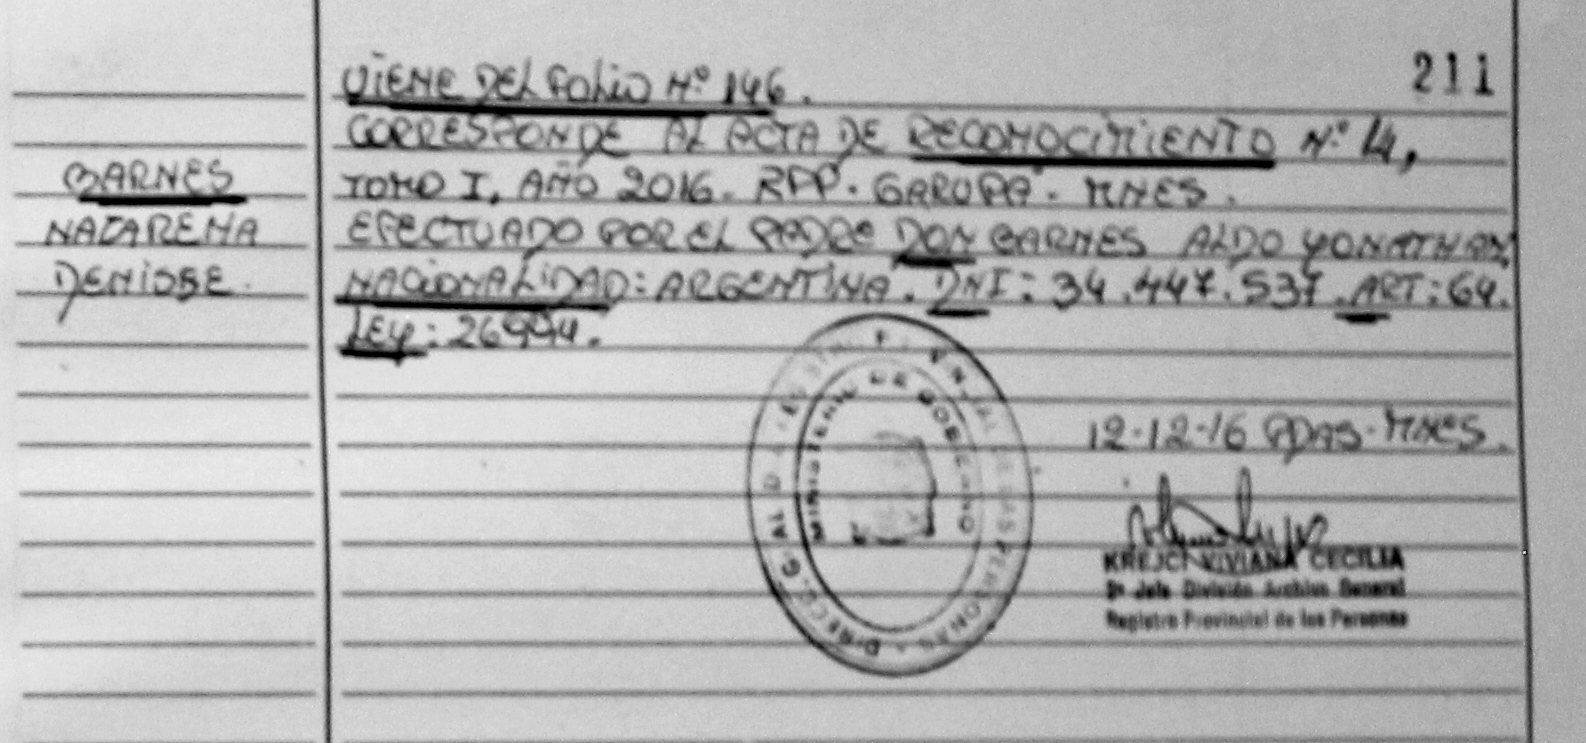 211
VIENE DEL FOLIO Nº 146.
CORRESPONDE AL ACTA DE RECONOCIMIENTO Nº 14,
TOMO I, AÑO 2016. RPP. GARUPA. MNES.
EFECTUADO POR EL PADRE DON BARNES ALDO YONATHAN
NACIONALIDAD: ARGENTINA. DNI: 34.447.537. ART: 64.
LEY: 26994.
BARNES
NAZARENA
DENISSE.
12-12-16 PDAS-MNES.
KREJCI VIVIANA CECILIA
Jefe División Archivo General
Registro Provincial de las Personas
MINISTERIO DE GOBIERNO
DE LAS PERSONAS